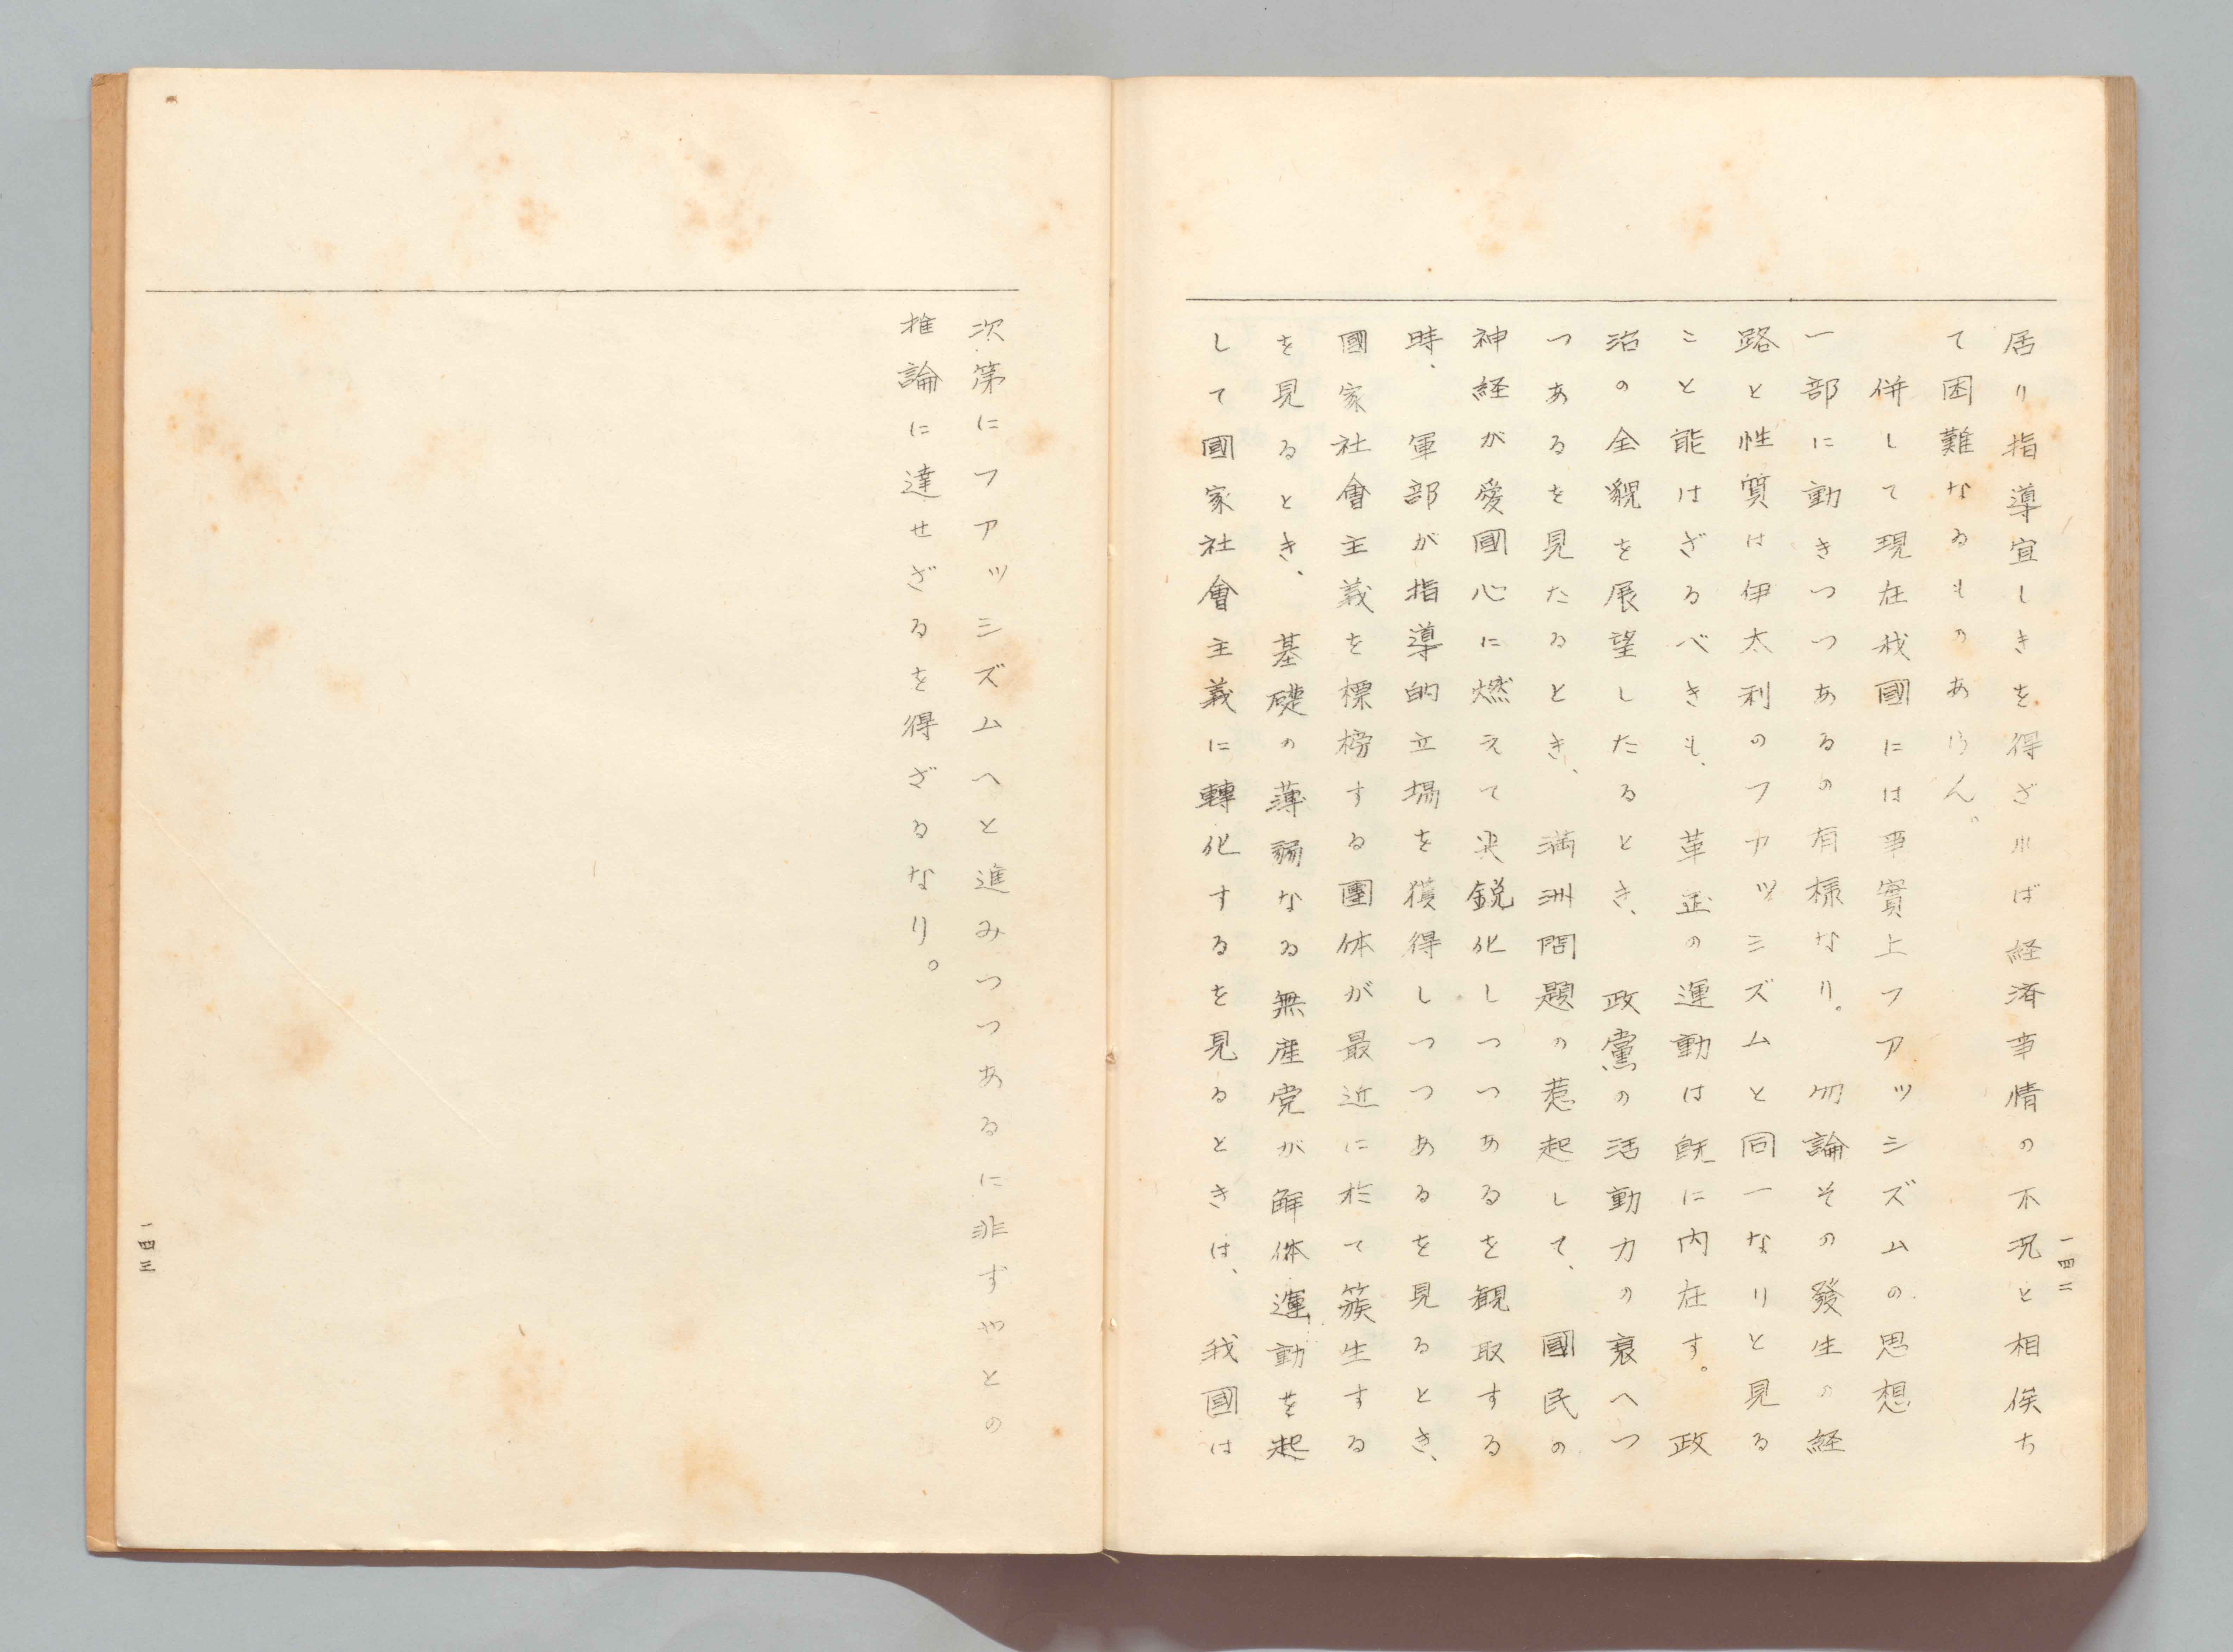 居り指導宜しきを得ざれば経済事情の不況と相俟ち
て困難なるものあらん。
併して現在我國には事實上フアッシズムの思想
一部に動きつつあるの有様なり。勿論その發生の経
路と性質は伊太利のフアッシズムと同一なりと見る
こと能はざるべきも、革正の運動は既に内在す。政
治の全貌を展望したるとき、政黨の活動力の衰へつ
つあるを見たるとき、満洲問題の惹起して、國民の
神経が愛國心に燃えて尖鋭化しつつあるを観取する
時、軍部が指導的立場を獲得しつつあるを見るとき、
國家社會主義を標榜する團体が最近に於て簇生する
を見るとき、基礎の薄弱なる無産党が解体運動を起
して國家社會主義に轉化するを見るときは、我國は
一四二
次第にフアッシズムへと進みつつあるに非ずやとの
推論に達せざるを得ざるなり。
一四三